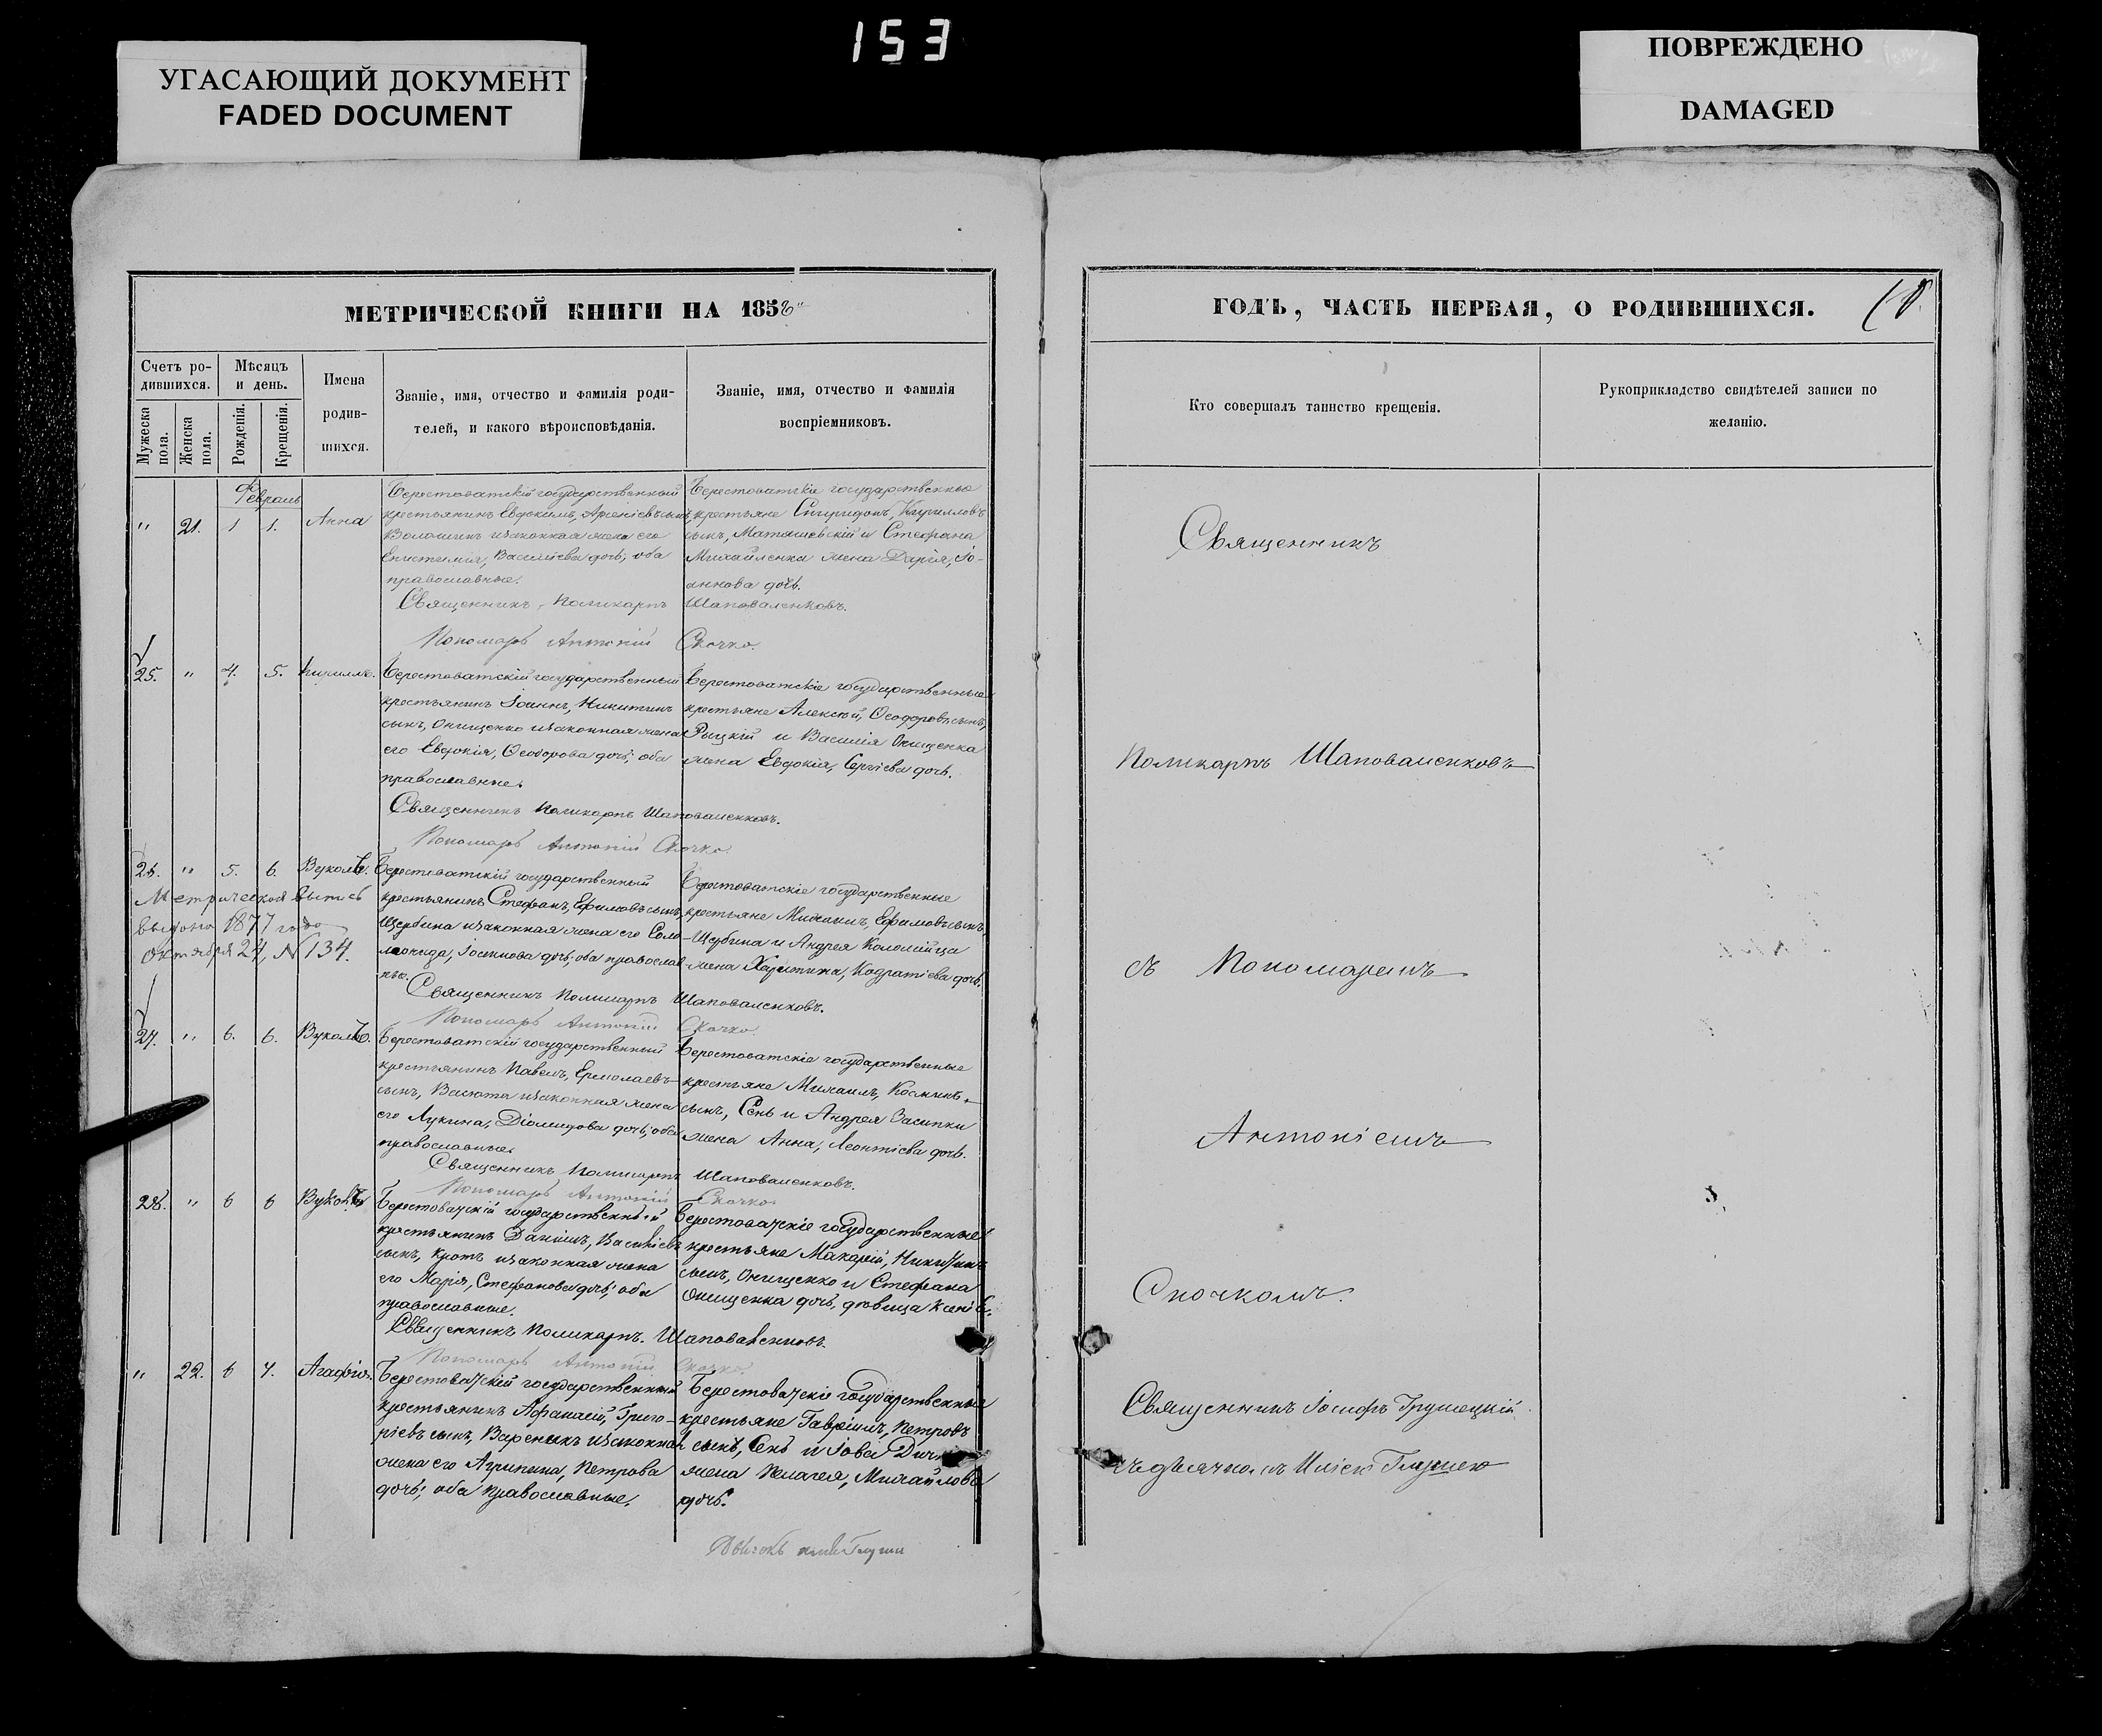 153
УГАСАЮЩИЙ ДОКУМЕНТ
FADED DOCUMENT
ПОВРЕЖДЕНО
DAMAGED
МЕТРИЧЕСКОЙ КНИГИ НА 1858
Счетъ ро-
дившихся.
Мѣсяцъ
и день.
Имена
родив-
шихся.
Званіе, имя, отчество и фамилія роди-
телей, и какого вѣроисповѣданія.
Званіе, имя, отчество и фамилія
воспріемниковъ.
Мужеска
пола.
Женска
пола.
Рожденія.
Крещенія.
Февраль
" 21. 1 1. Анна
Берестоватскій государственный
крестьянинъ Евдокимъ, Арсеніевъ сынъ,
Волошинъ и законная жена его
Епистимія, Василіева дочь; оба
православные.
Берестоватскіе государственные
крестьяне Спиридонъ, Кирилловъ
сынъ, Матяшевскій и Стефана
Михайленка жена Дарія, Іо-
аннова дочь.
Священникъ Поликарпъ Шаповаленковъ.
Пономарь Антоній Скочко.
25. " 4. 5. Кириллъ.
Берестоватскій государственный
крестьянинъ Іоаннъ, Никитинъ
сынъ, Онищенко и законная жена
его Евдокія, Ѳеодорова дочь; оба
православные.
Берестоватскіе государственные
крестьяне Алексѣй, Ѳеодоровъ сынъ,
Рыцкій и Василія Онищенка
жена Евдокія, Сергіева дочь.
Священникъ Поликарпъ Шаповаленковъ.
Пономарь Антоній Скочко.
26. " 5. 6. Вуколъ.
Метрическая выпись
выдана 1877 года
октября 24, N 134.
Берестоватскій государственный
крестьянинъ Стефанъ, Ефимовъ сынъ,
Щербина и законная жена его Соло-
монида, дочь; оба православ-
ные.
Берестоватскіе государственные
крестьяне Михаилъ, Ефимовъ сынъ,
Щербина и Андрея Коломійца
жена Харитина, Кодратіева дочь.
Священникъ Поликарпъ Шаповаленковъ.
Пономарь Антоній Скочко.
27. " 6. 6. Вуколъ.
Берестоватскій государственный
крестьянинъ Павелъ, Ермолаевъ
сынъ, Васюта и законная жена
его Лукина, Діомидова дочь; оба
православные.
Берестоватскіе государственные
крестьяне Михаилъ, Косминъ
сынъ, Сень и Андрея Засипки
жена Анна, Леонтіева дочь.
Священникъ Поликарпъ Шаповаленковъ.
Пономарь Антоній Скочко.
28. " 6 6 Вуколъ
Берестоватскій государственный
крестьянинъ Даніилъ, Василіевъ
сынъ, Кротъ и законная жена
его Марія, Стефанова дочь; оба
православные.
Берестоватскіе государственные
крестьяне Макарій, Никитинъ
сынъ, Онищенко и Стефана
Онищенка дочь, дѣвица Ксенія.
Священникъ Поликарпъ Шаповаленковъ.
Пономарь Антоній Скочко.
" 22. 6 7. Агафія.
Берестоватскій государственный
крестьянинъ Афанасій, Григо-
ріевъ сынъ, Вареникъ и законная
жена его Агрипина, Петрова
дочь; оба православные.
Берестоватскіе государственные
крестьяне Гавріилъ, Петровъ
сынъ, Сень и Іова
жена Пелагея, Михайлова
дочь.
ГОДЪ, ЧАСТЬ ПЕРВАЯ, О РОДИВШИХСЯ.
Кто совершалъ таинство крещенія.
Рукоприкладство свидѣтелей записи по
желанію.
Священникъ
Поликарпъ Шаповаленковъ
съ Пономаремъ
Антоніемъ
Скочкомъ.
Священникъ Іосифъ Грушецкій